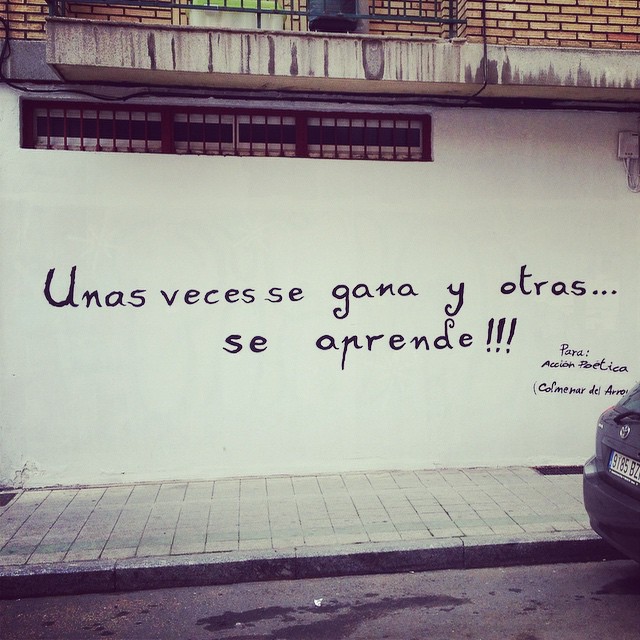 Unas veces se gana y otras...
se aprende!!!
Para:
Acción Poética
(Colmenar del